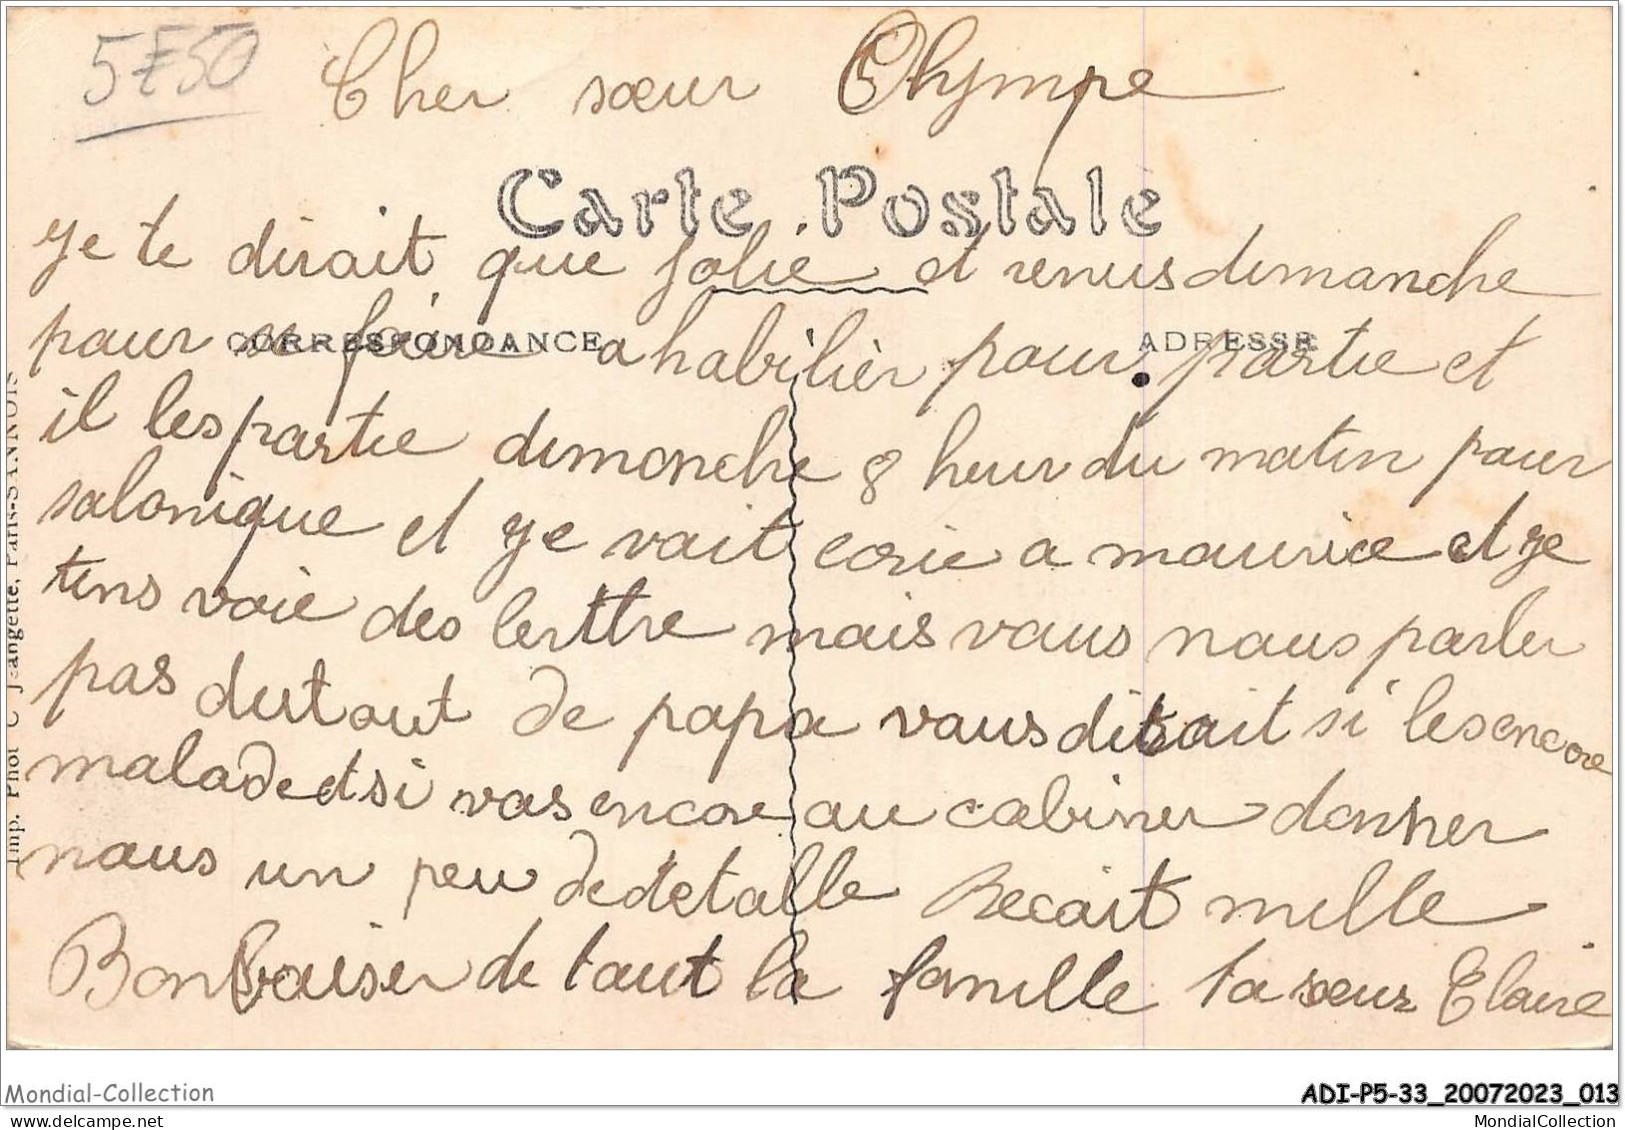 5E50
Cher sœur Olympe
Carte Postale
ye te dirait que Jolie et venus dimanche
CORRESPONDANCE
ADRESSE
pour se faire a habilier pour partie et
il les partie dimanche 8 heur du matin pour
salonique et ye vait ecrie a maurice et ye
tens voie des lerttre mais vous nous parler
pas dutout de papa vous ditait si les encore
malade et si vas encore au cabiner donner
nous un peu de detalle Recait mille
Bon baiser de tout la famille ta sœur Claire
Imp. Phot C Jeangette, Paris-SANNOIS
Mondial-Collection
ADI-P5-33_20072023_013
MondialCollection.com
MondialCollection